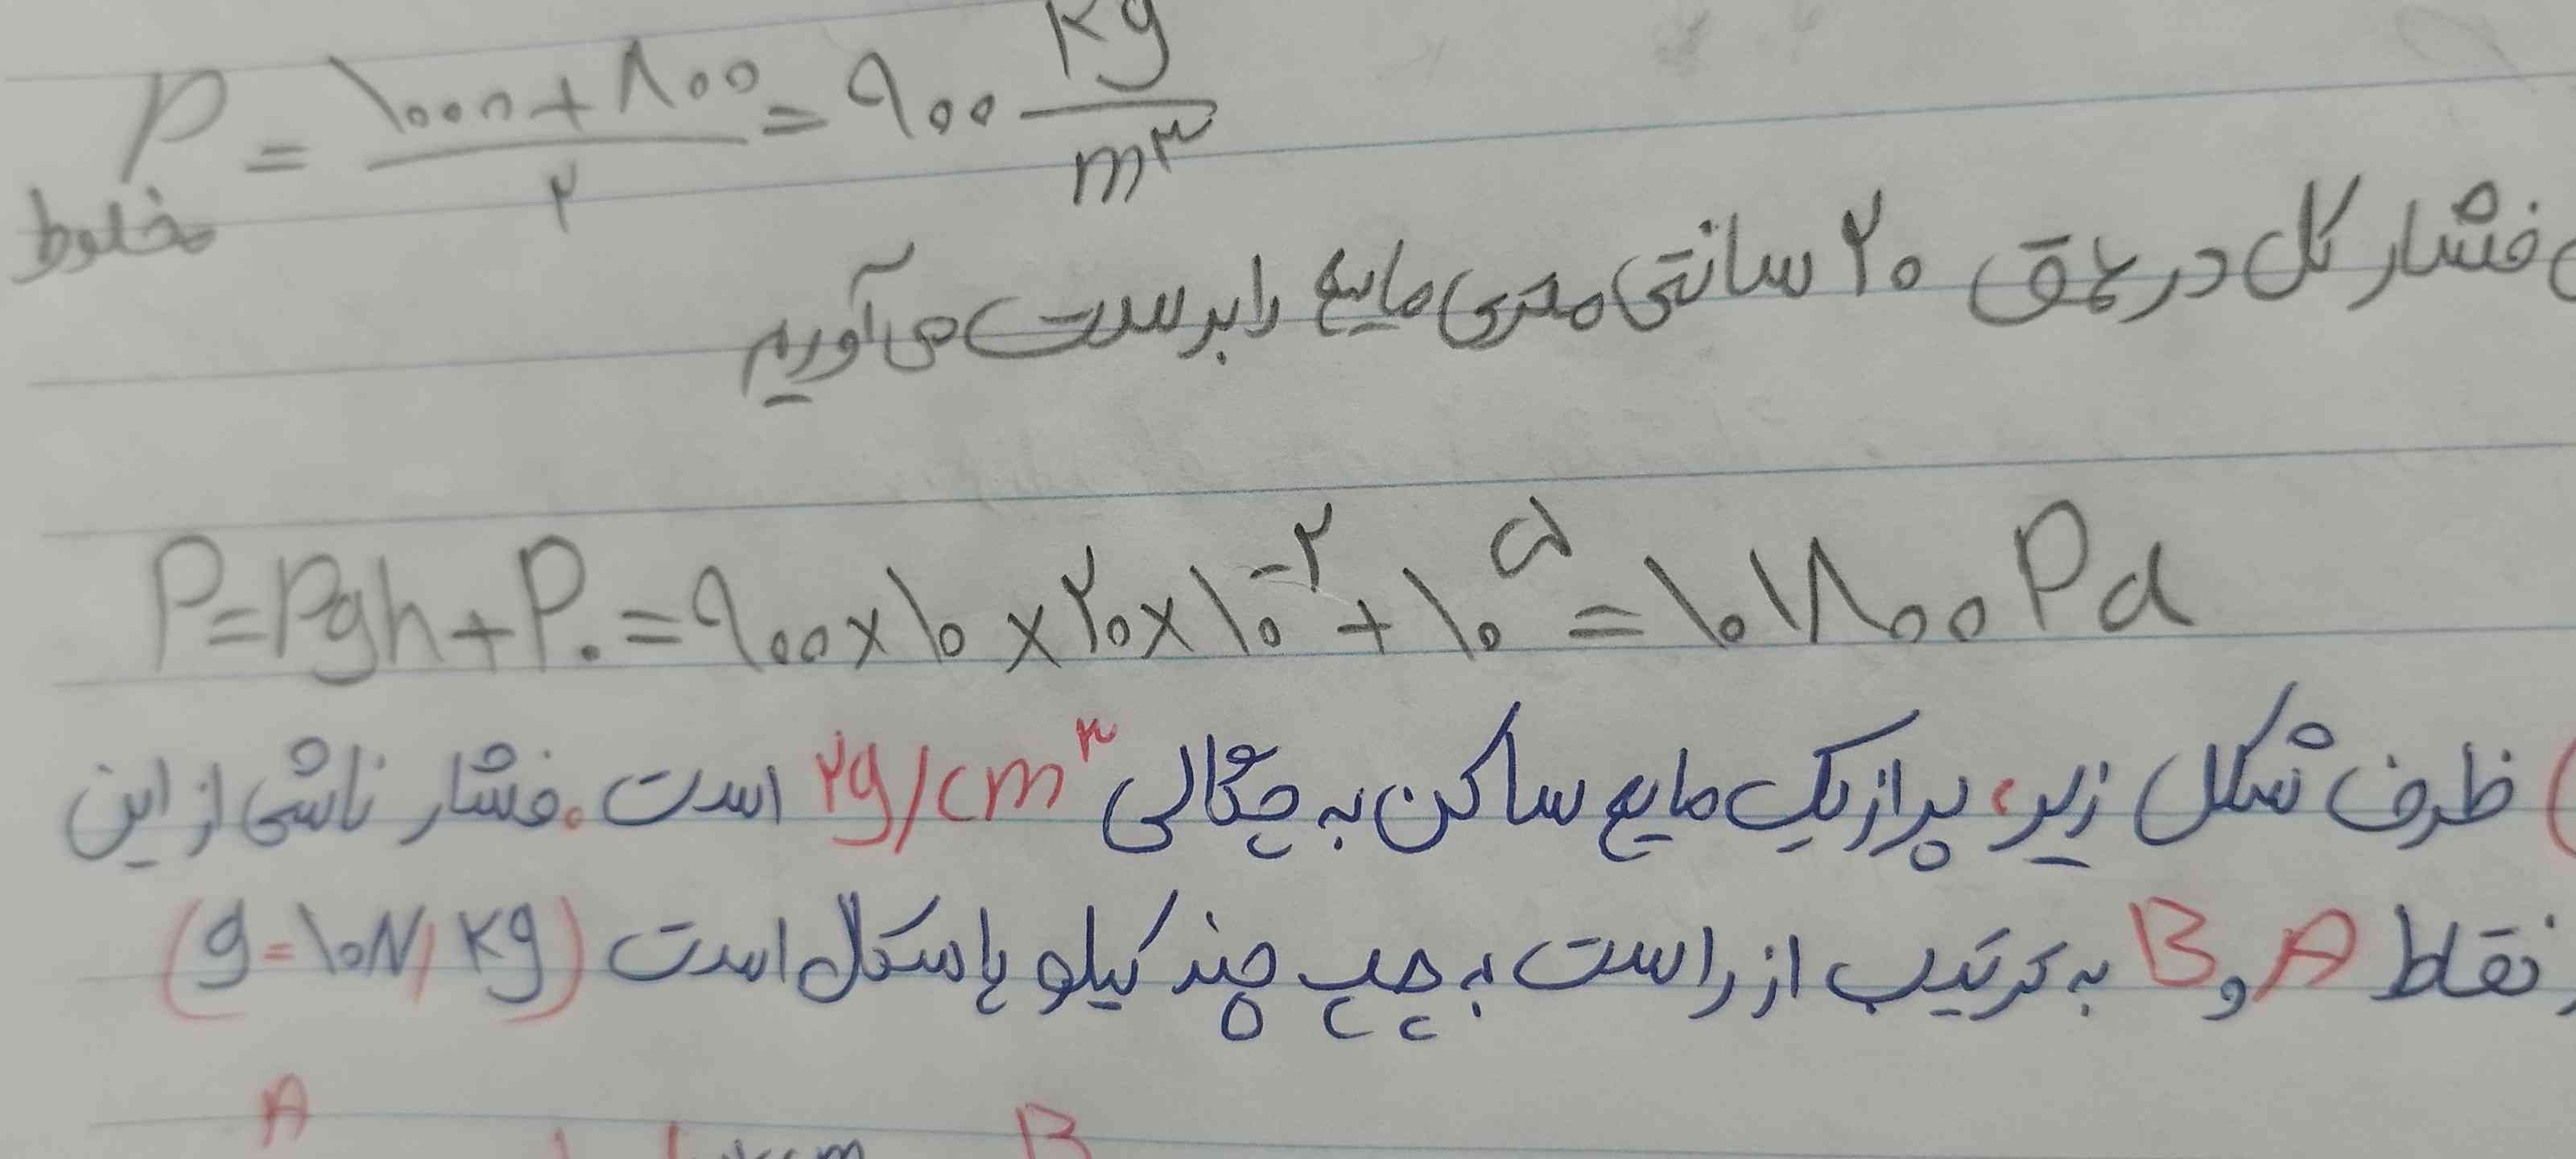 ρ = (۱۰۰۰ + ۸۰۰) / ۲ = ۹۰۰ kg / m³
مخلوط
فشار کل در عمق ۲۰ سانتی متری مایع را بدست می‌آوریم
P = ρgh + P۰ = ۹۰۰ × ۱۰ × ۲۰ × ۱۰^-۲ + ۱۰^۵ = ۱۰۱۸۰۰ Pa
ظرف شکل زیر، پر از یک مایع ساکن به چگالی ۲g/cm³ است. فشار ناشی از این
نقاط A و B به ترتیب از راست به چپ چند کیلو پاسکال است (g=۱۰N/kg)
A B